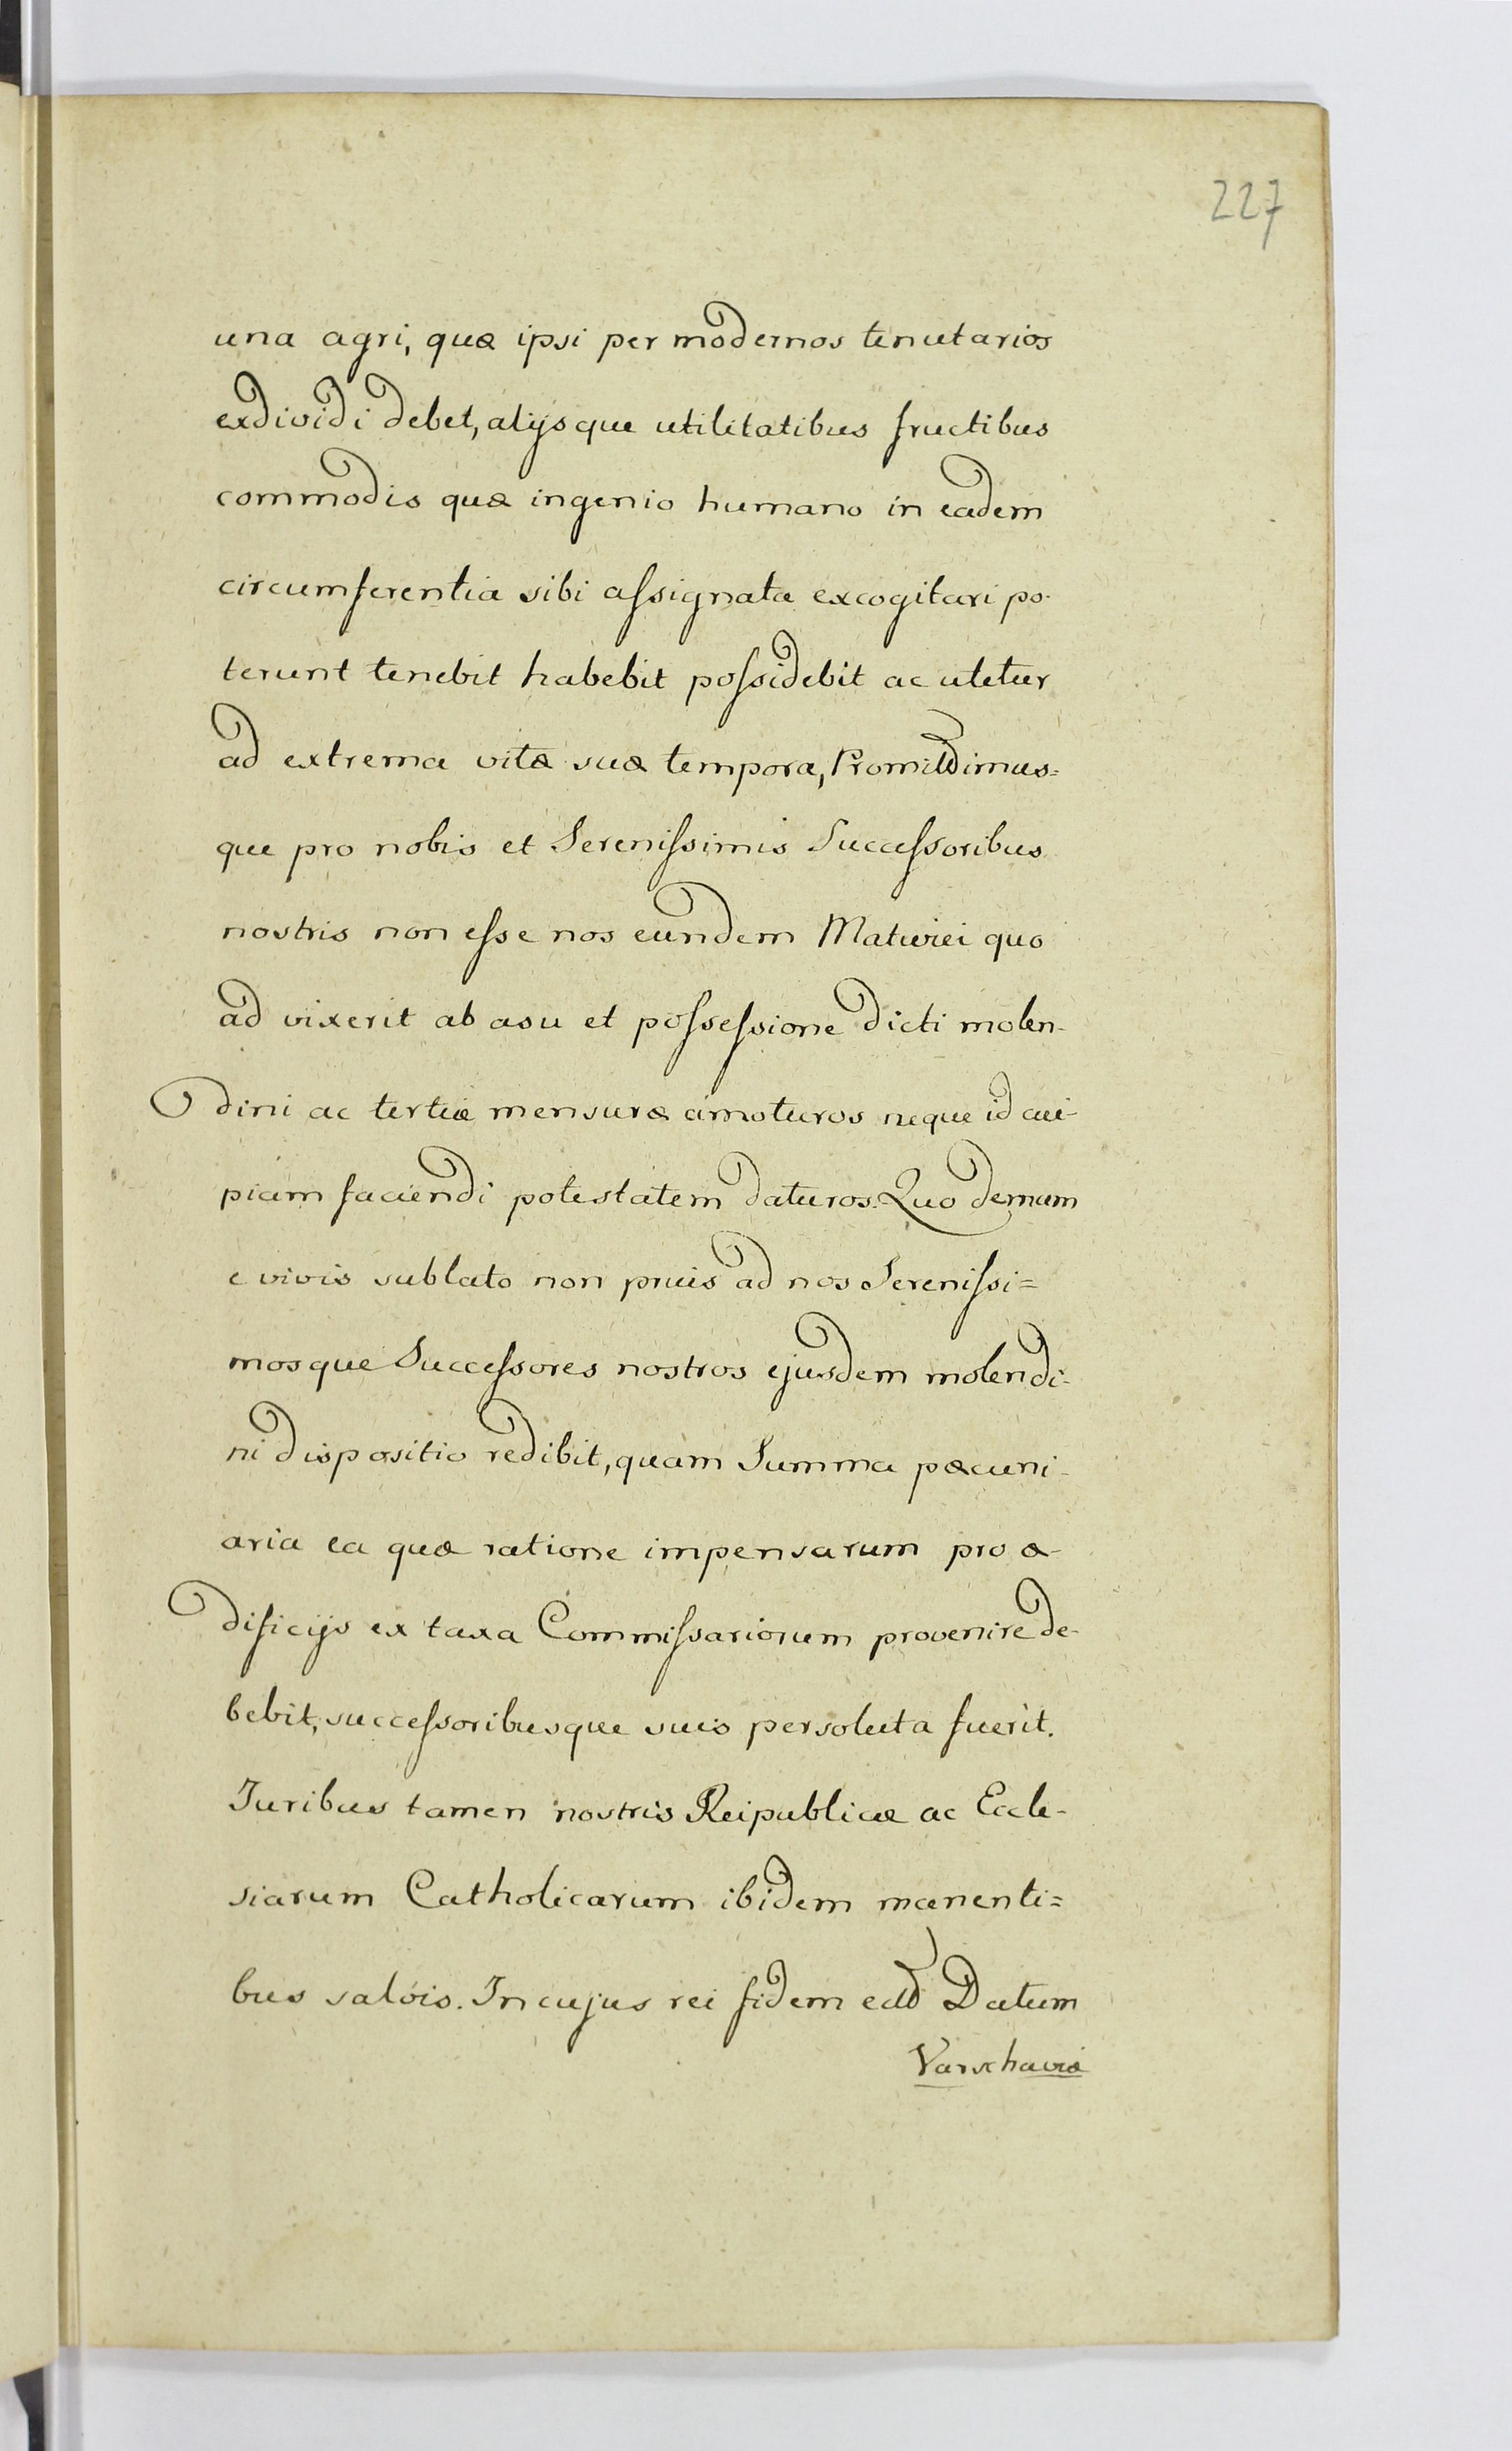 227
una agri, quæ ipsi per modernos tenutarios
exdividi debet, alijsque utilitatibus fructibus
commodis quæ ingenio humano in eadem
circumferentia sibi aſsignata excogitari po-
terunt tenebit habebit poſsidebit ac utetur
ad extrema vitæ suæ tempora, Promittimus=
que pro nobis et Sereniſsimis Succeſsoribus
nostris non eſse nos eundem quo
ad vixerit ab usu et poſseſsione dicti molen-
dini ac tertiæ mensuræ amoturos neque id cui-
piam faciendi potestatem daturos. Quo demum
e vivis sublato non prius ad nos Sereniſsi=
mosque Succeſsores nostros ejusdem molendi-
ni dispositio redibit, quam Summa pæcuni-
aria ea quæ ratione impensarum pro æ-
dificijs ex taxa Commiſsariorum provenire de-
bebit, succeſsoribusque suis persoluta fuerit.
Juribus tamen nostris Reipublicæ ac Eccle-
siarum Catholicarum ibidem manenti=
bus salvis. In cujus rei fidem ett Datum
Varschaviæ